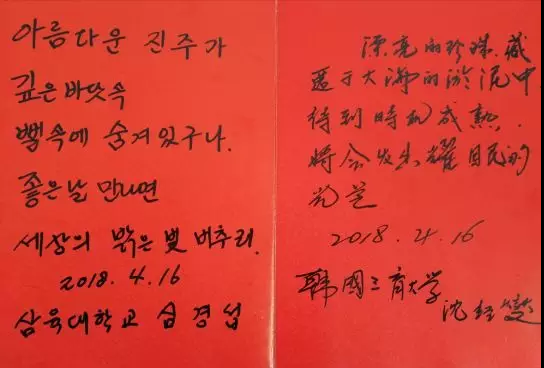 아름다운 진주가
깊은 바닷속
뻘속에 숨겨있구나.
좋은날 만나면
세상의 밝은 빛 비추리.
2018. 4. 16
삼육대학교 심경섭
漂亮的珍珠,藏
匿于大海的淤泥中
待到时机成熟.
将会发出耀目民的
光芒
2018.4.16
韩國三育大学
沈经燮